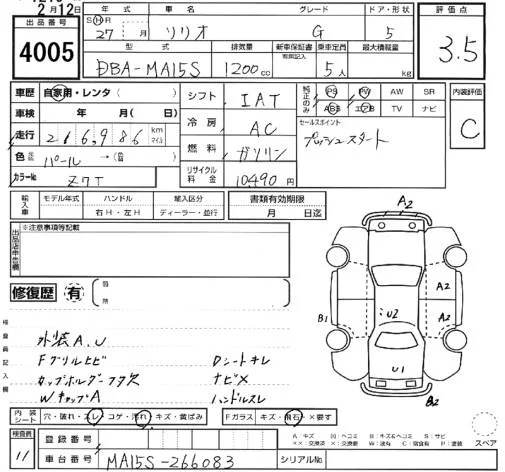 2月12日
出品番号
4005
年式
車名
グレード
ドア・形状
S H R
27
月
ソリオ
G
5
評価点
3.5
型式
排気量
新車保証書
有無記入
乗車定員
最大積載量
DBA-MA15S
1200cc
5人
kg
車歴
自家用・レンタ( )
車検
年 月( 日)
走行
216,986
km
マイル
色
パール
→( )
カラーNo
Z7T
シフト
IAT
冷房
AC
燃料
ガソリン
リサイクル料金
10490円
純正のみ
PS
PW
AW
SR
ABS
エアB
TV
ナビ
セールスポイント
プッシュスタート
内装評価
C
輸入車
モデル年式
ハンドル
右H・左H
輸入区分
ディーラー・並行
書類有効期限
月 日迄
出品店申告欄
※注意事項等記載
修復歴
有
箇所
検査員記入欄
外装A.U
Fグリルヒビ
カップホルダーフタ欠
WキャップA
Dシートキレ
ナビ×
ハンドルスレ
A2
A2
A2
B1
U2
U1
B2
内装シート
穴・破れ・スレ・コゲ・汚れ・キズ・黄ばみ
Fガラス
キズ・飛石・×要す
A:キズ
U:ヘコミ
B:キズ&ヘコミ
S:サビ
××:交換済
×:要交換
W:波有
C:腐食有
P:塗装
スペア
検査員
11
登録番号
車台番号
MA15S-266083
シリアルNo.